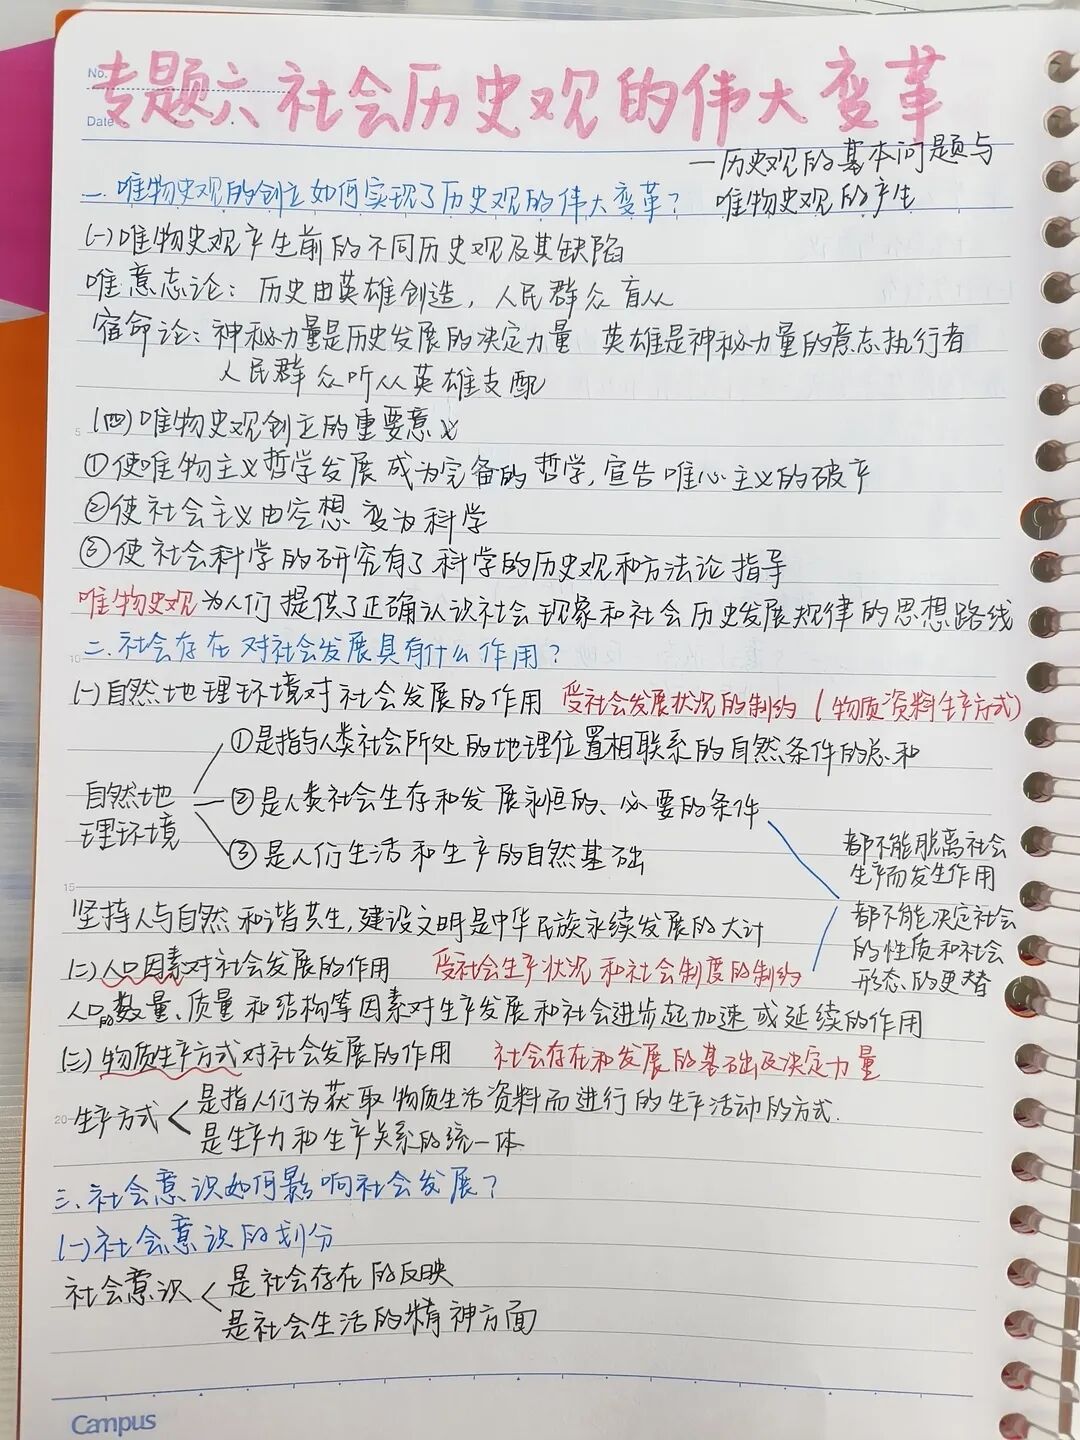 No.
Date
专题六 社会历史观的伟大变革
—历史观的基本问题与
唯物史观的产生
一.唯物史观的创立如何实现了历史观的伟大变革？
(一)唯物史观产生前的不同历史观及其缺陷
唯意志论：历史由英雄创造，人民群众盲从
宿命论：神秘力量是历史发展的决定力量 英雄是神秘力量的意志执行者
人民群众听从英雄支配
(四)唯物史观创立的重要意义
①使唯物主义哲学发展成为完备的哲学,宣告唯心主义的破产
②使社会主义由空想变为科学
③使社会科学的研究有了科学的历史观和方法论指导
唯物史观为人们提供了正确认识社会现象和社会历史发展规律的思想路线
二.社会存在对社会发展具有什么作用？
(一)自然地理环境对社会发展的作用 受社会发展状况的制约（物质资料生产方式）
自然地
理环境
①是指与人类社会所处的地理位置相联系的自然条件的总和
②是人类社会生存和发展永恒的、必要的条件
③是人们生活和生产的自然基础
都不能脱离社会
生产而发生作用
都不能决定社会
的性质和社会
形态的更替
坚持人与自然和谐共生,建设文明是中华民族永续发展的大计
(二)人口因素对社会发展的作用 受社会生产状况和社会制度的制约
人口的数量、质量和结构等因素对生产发展和社会进步起加速或延续的作用
(三)物质生产方式对社会发展的作用 社会存在和发展的基础及决定力量
生产方式
是指人们为获取物质生活资料而进行的生产活动的方式.
是生产力和生产关系的统一体
三.社会意识如何影响社会发展？
(一)社会意识的划分
社会意识
是社会存在的反映
是社会生活的精神方面
5
10
15
20
Campus